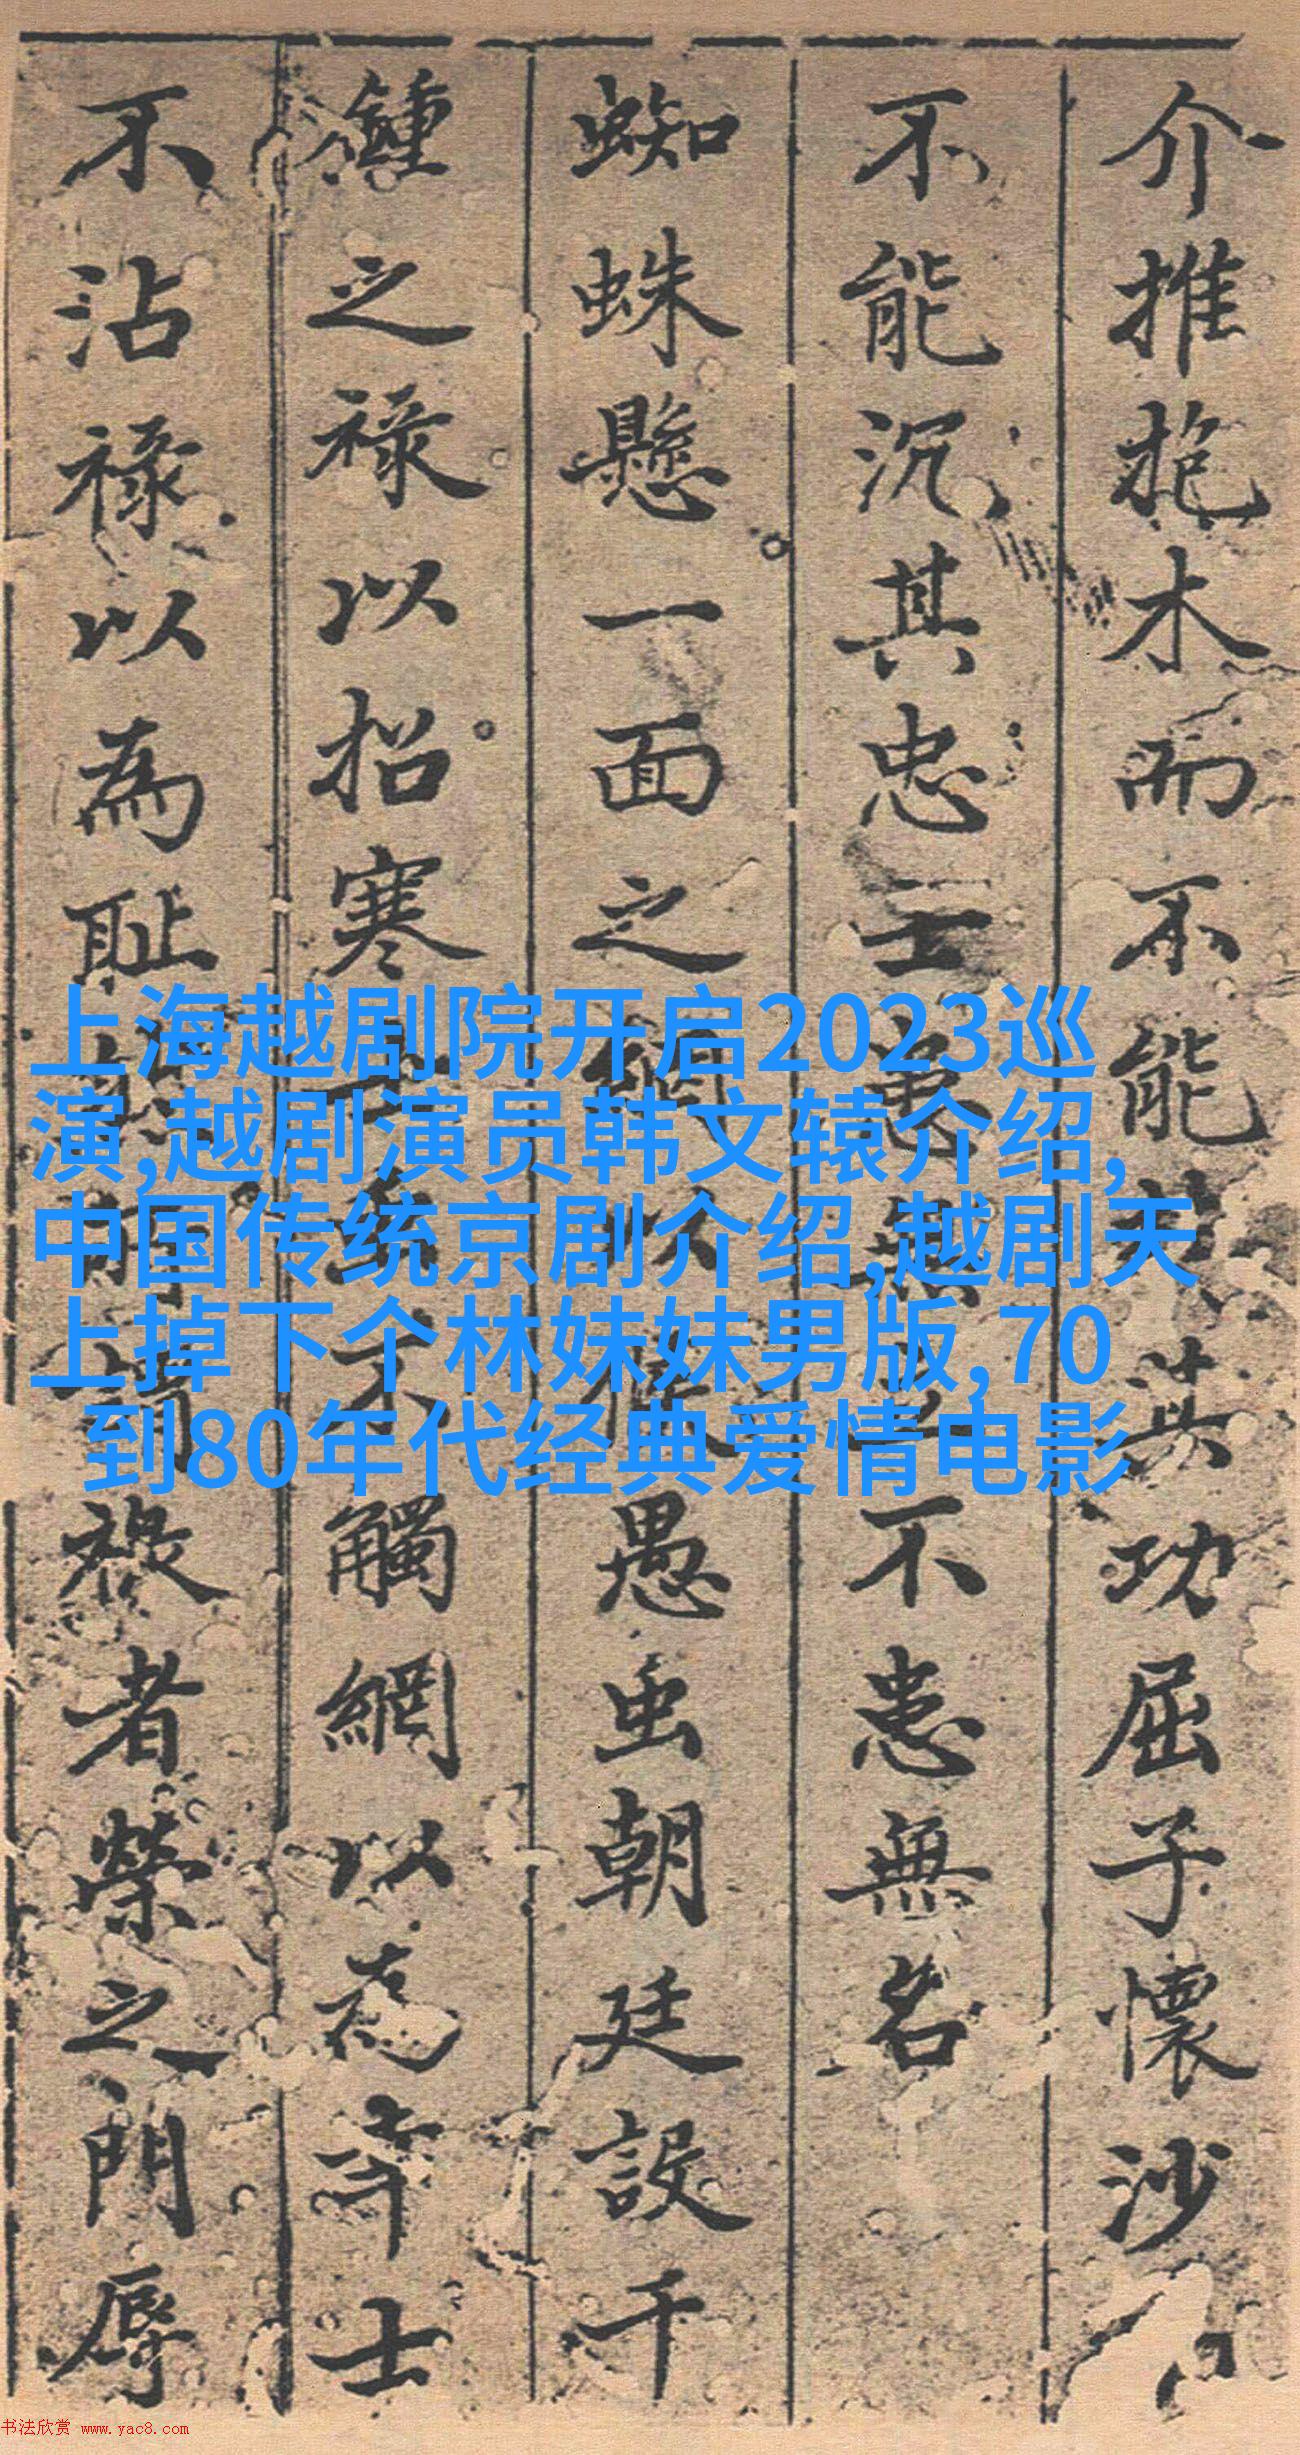 介推抱木而不能其功屈子懷沙
不能沉其忠士患無不患無名
蜘蛛懸一面之網以愚虫朝廷設千
鍾之祿以招寒不觸網以為士
不沾祿以為恥祿者榮之門辱
上海越剧院开启2023巡
演,越剧演员韩文辕介绍,
中国传统京剧介绍,越剧天
上掉下个林妹妹男版,70
到80年代经典爱情电影
书法欣赏 www.yac8.com